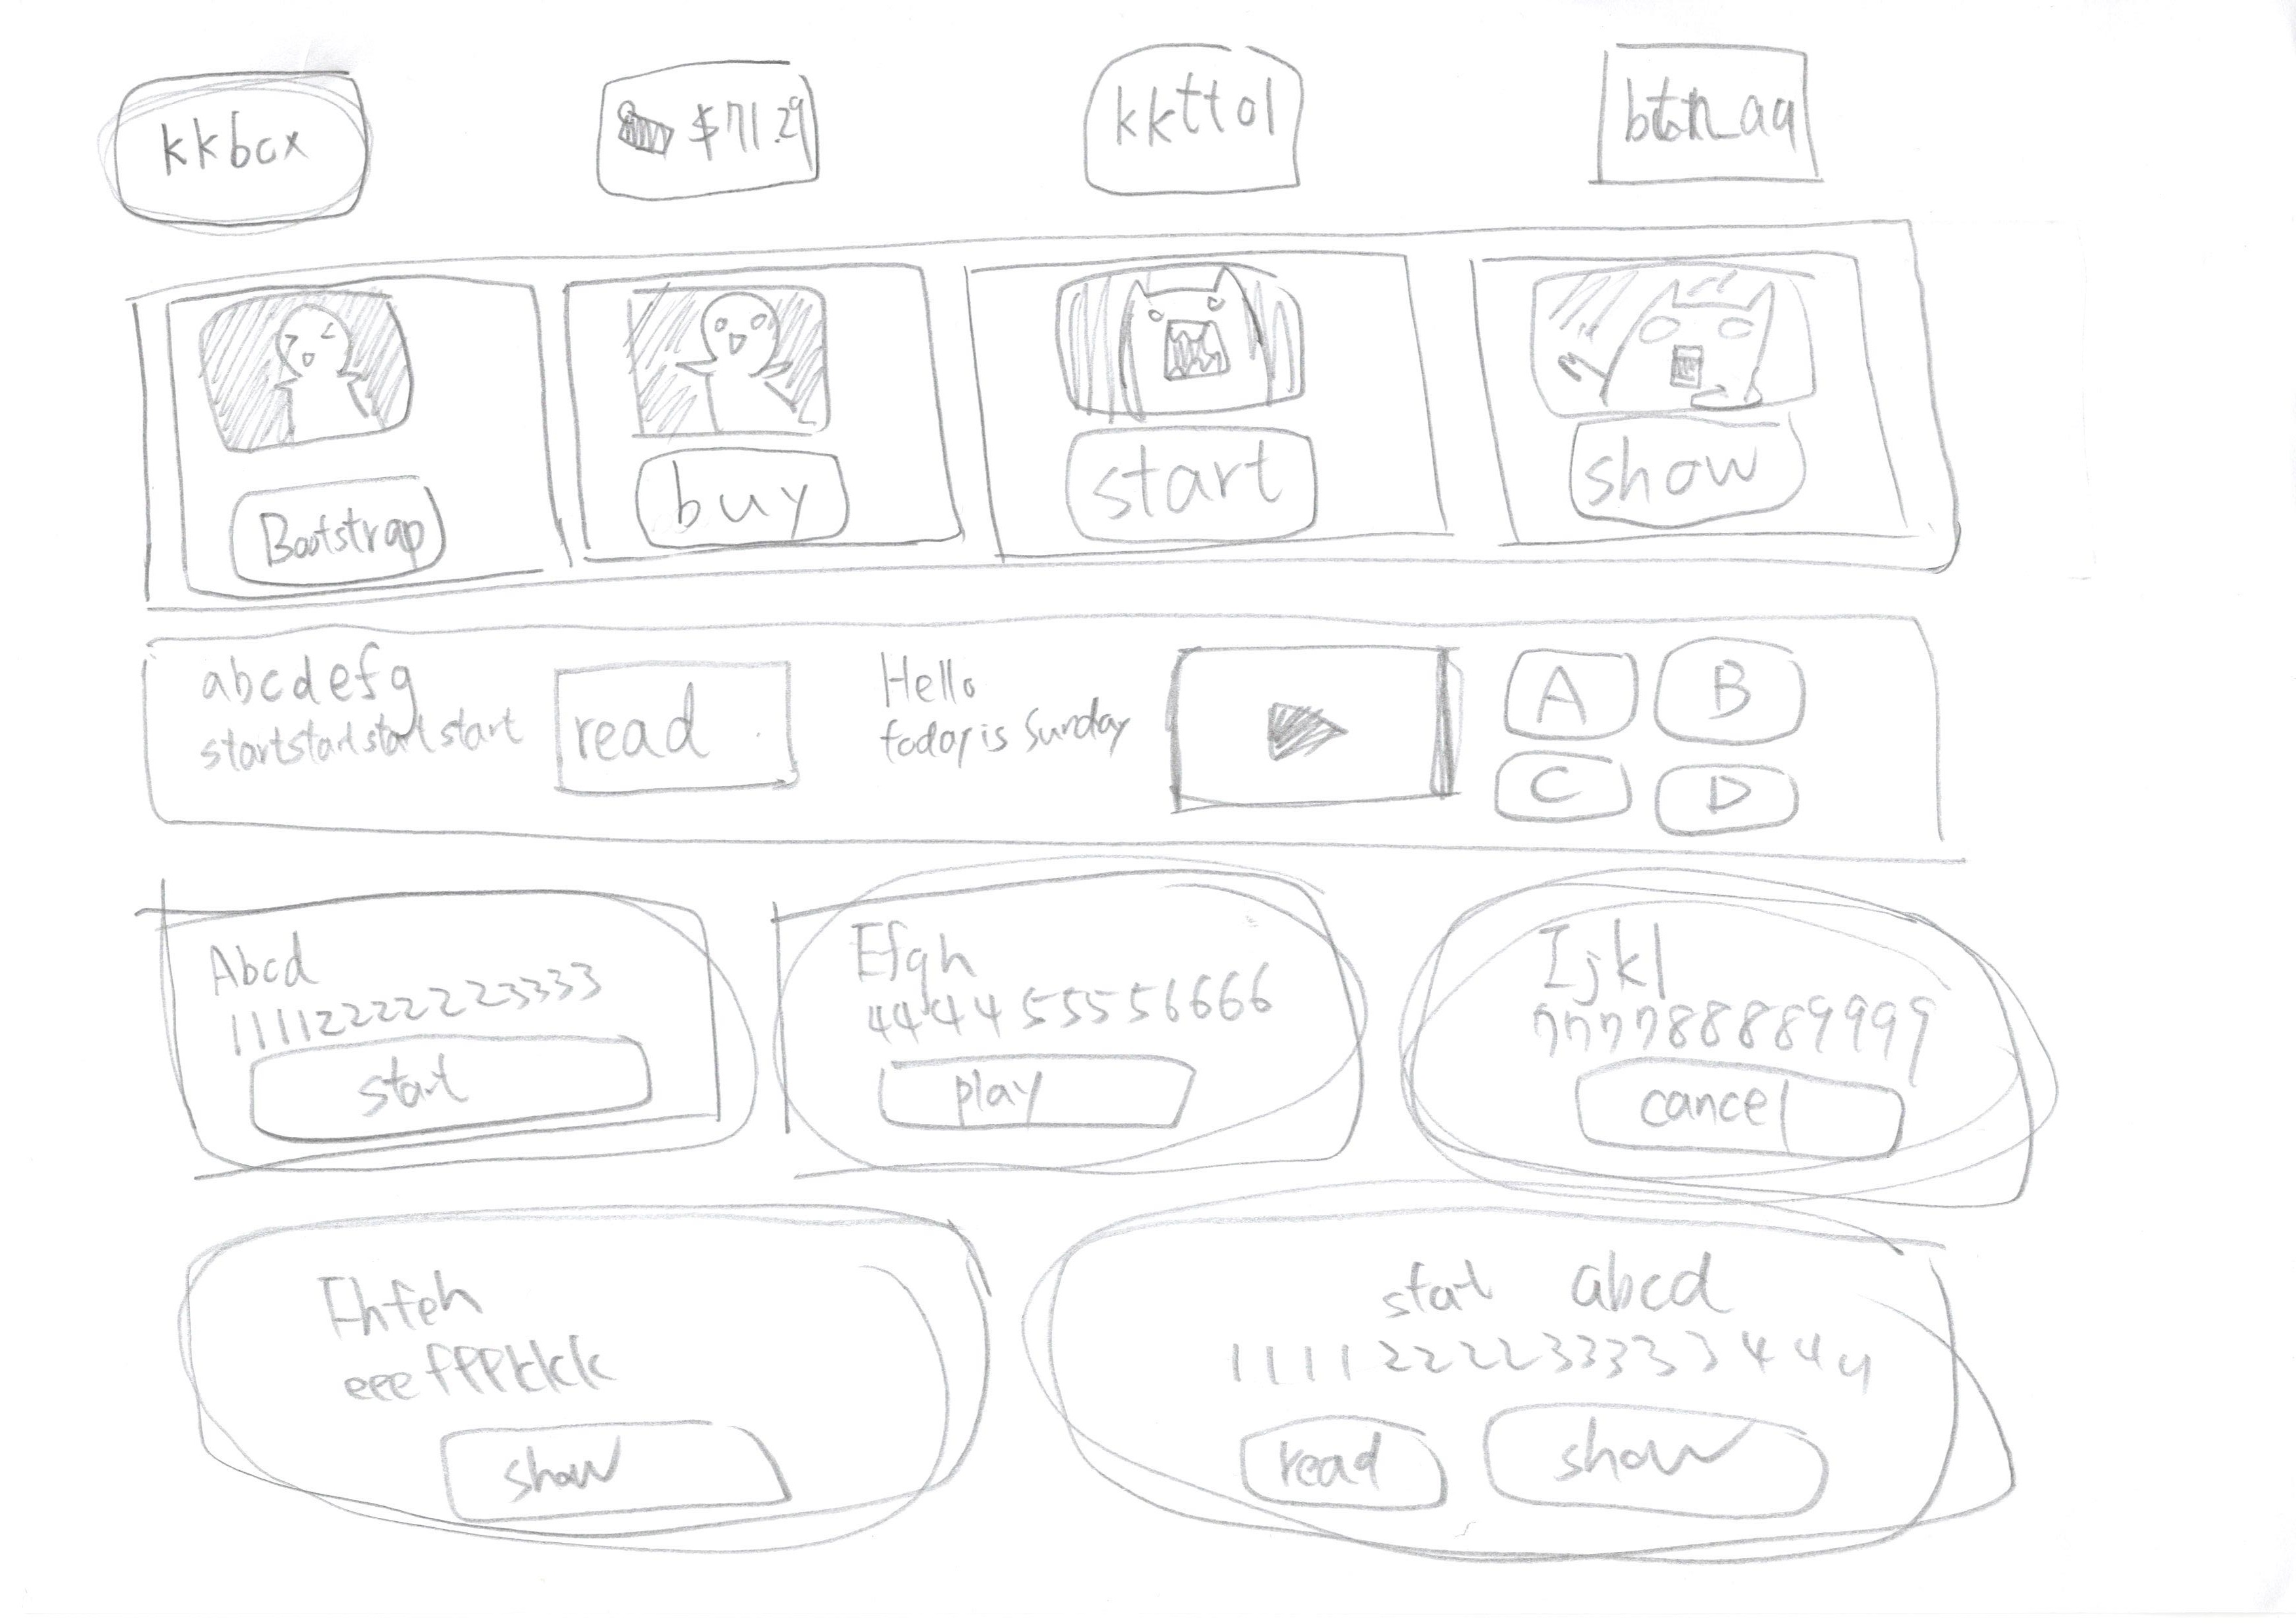 kkbcx
$71.29
kkttol
btn_aq
Bootstrap
buy
start
show
abcdefg
startstartstartstart
read
Hello
today is Sunday
A
B
C
D
Abcd
11112222223333
start
Efgh
444455556666
play
Ijkl
777788889999
cancel
eeefffkkkk
show
start abcd
1111222233333444
read
show